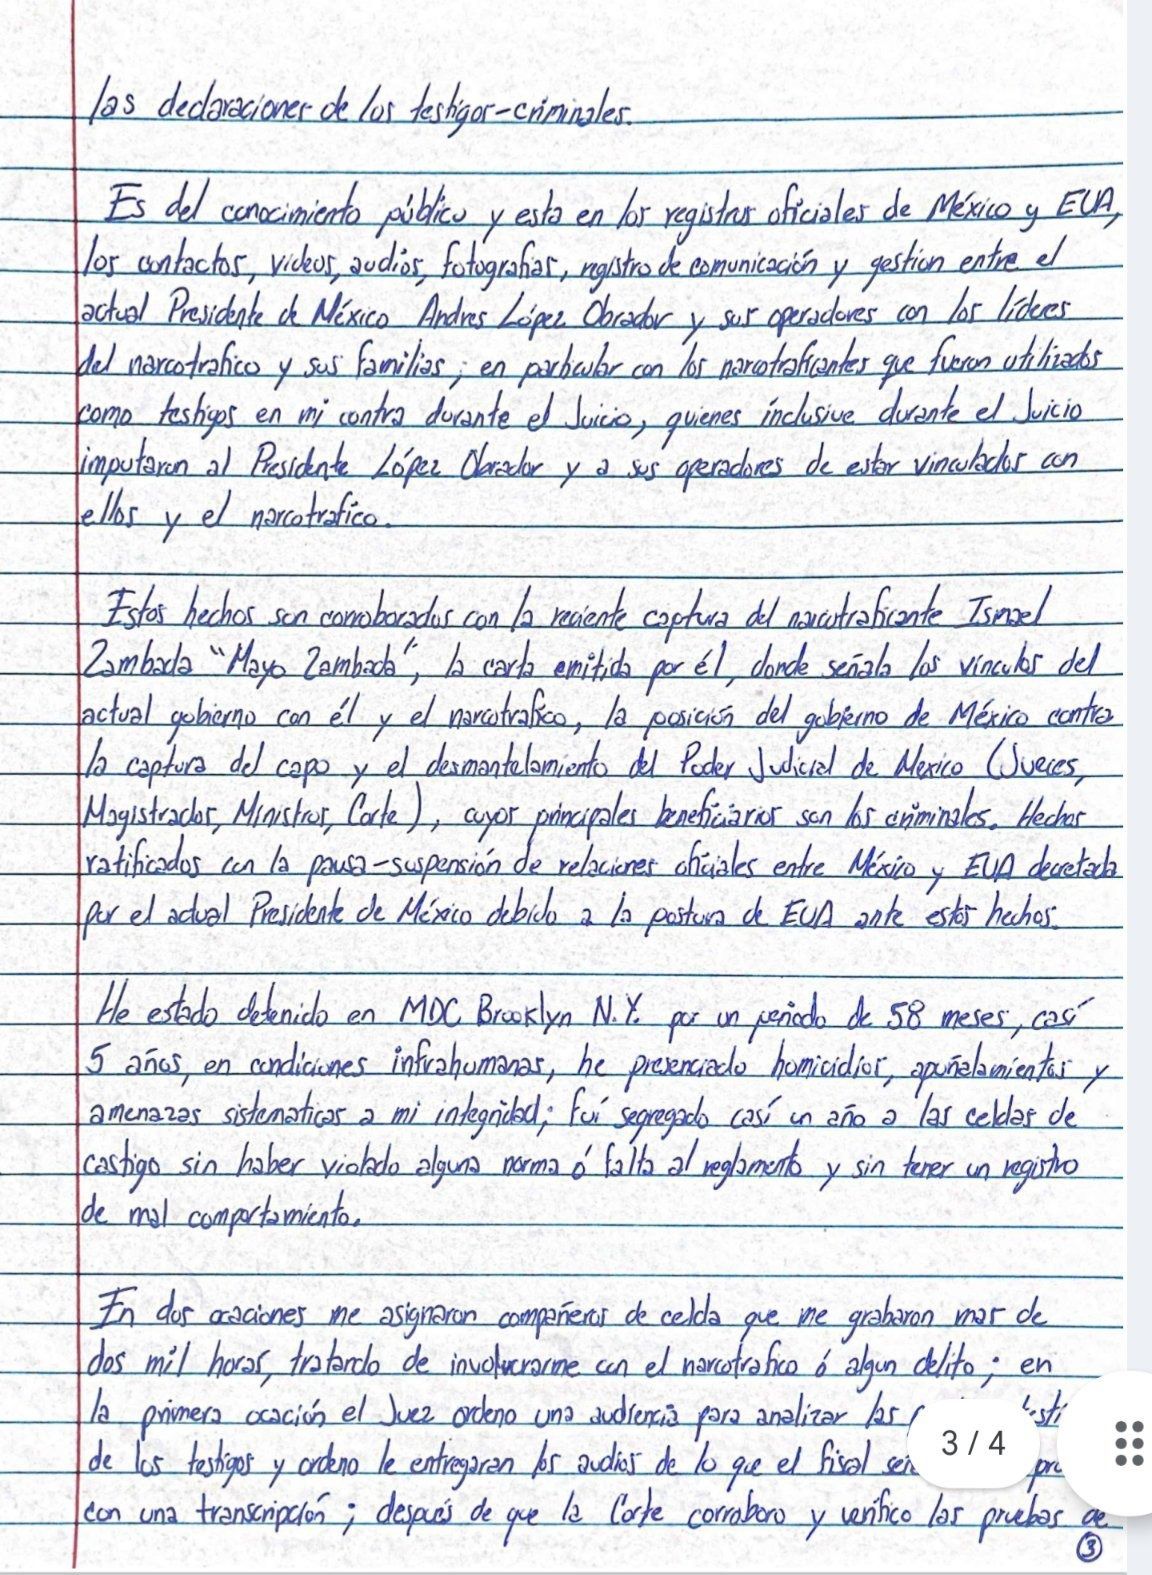 las declaraciones de los testigos-criminales.
Es del conocimiento público y esta en los registros oficiales de México y EUA,
los contactos, videos, audios, fotografias, registro de comunicación y gestion entre el
actual Presidente de México Andres López Obrador y sus operadores con los líderes
del narcotrafico y sus familias; en particular con los narcotraficantes que fueron utilizados
como testigos en mi contra durante el Juicio, quienes inclusive durante el Juicio
imputaron al Presidente López Obrador y a sus operadores de estar vinculados con
ellos y el narcotrafico.
Estos hechos son corroborados con la reciente captura del narcotraficante Ismael
Zambada "Mayo Zambada", la carta emitida por él, donde señala los vinculos del
actual gobierno con él y el narcotrafico, la posición del gobierno de México contra
la captura del capo y el desmantelamiento del Poder Judicial de Mexico (Jueces,
Magistrados, Ministros, Corte), cuyos principales beneficiarios son los criminales. Hechos
ratificados con la pausa-suspensión de relaciones oficiales entre México y EUA decretada
por el actual Presidente de México debido a la postura de EUA ante estos hechos.
He estado detenido en MDC Brooklyn N.Y. por un periodo de 58 meses, casí
5 años, en condiciones infrahumanas, he presenciado homicidios, apuñalamientos y
amenazas sistematicas a mi integridad; fuí segregado casí un año a las celdas de
castigo sin haber violado alguna norma ó falta al reglamento y sin tener un registro
de mal comportamiento.
En dos ocaciones me asignaron compañeros de celda que me grabaron mas de
dos mil horas, tratando de involucrarme con el narcotrafico ó algun delito; en
la primera ocación el Juez ordeno una audiencia para analizar las
de los testigos y ordeno le entregaran los audios de lo que el fiscal
con una transcripción; después de que la Corte corroboro y verifico las pruebas de
3 / 4
3